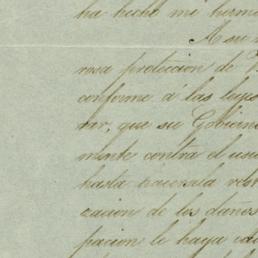 ha hecho mi herm
A su
rosa proteccion de
conforme á las leyes
rar, que su Gobiern
mente contra el usu
hasta hacerala
zacion de los daños
pacion le haya